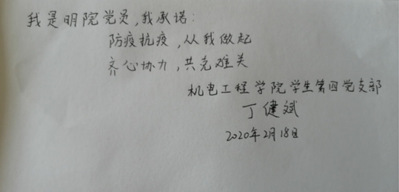 我是明院党员,我承诺:
防疫抗疫,从我做起
齐心协力,共克难关
机电工程学院学生第四党支部
丁健斌
2020年2月18日